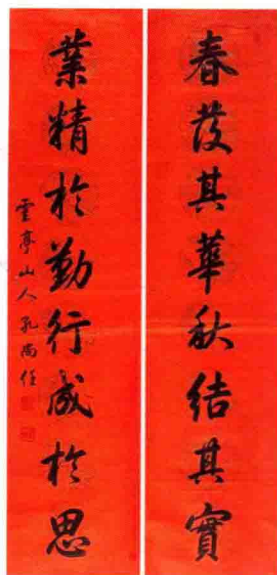 春發其華秋結其實
業精於勤行成於思
雲亭山人孔尚任